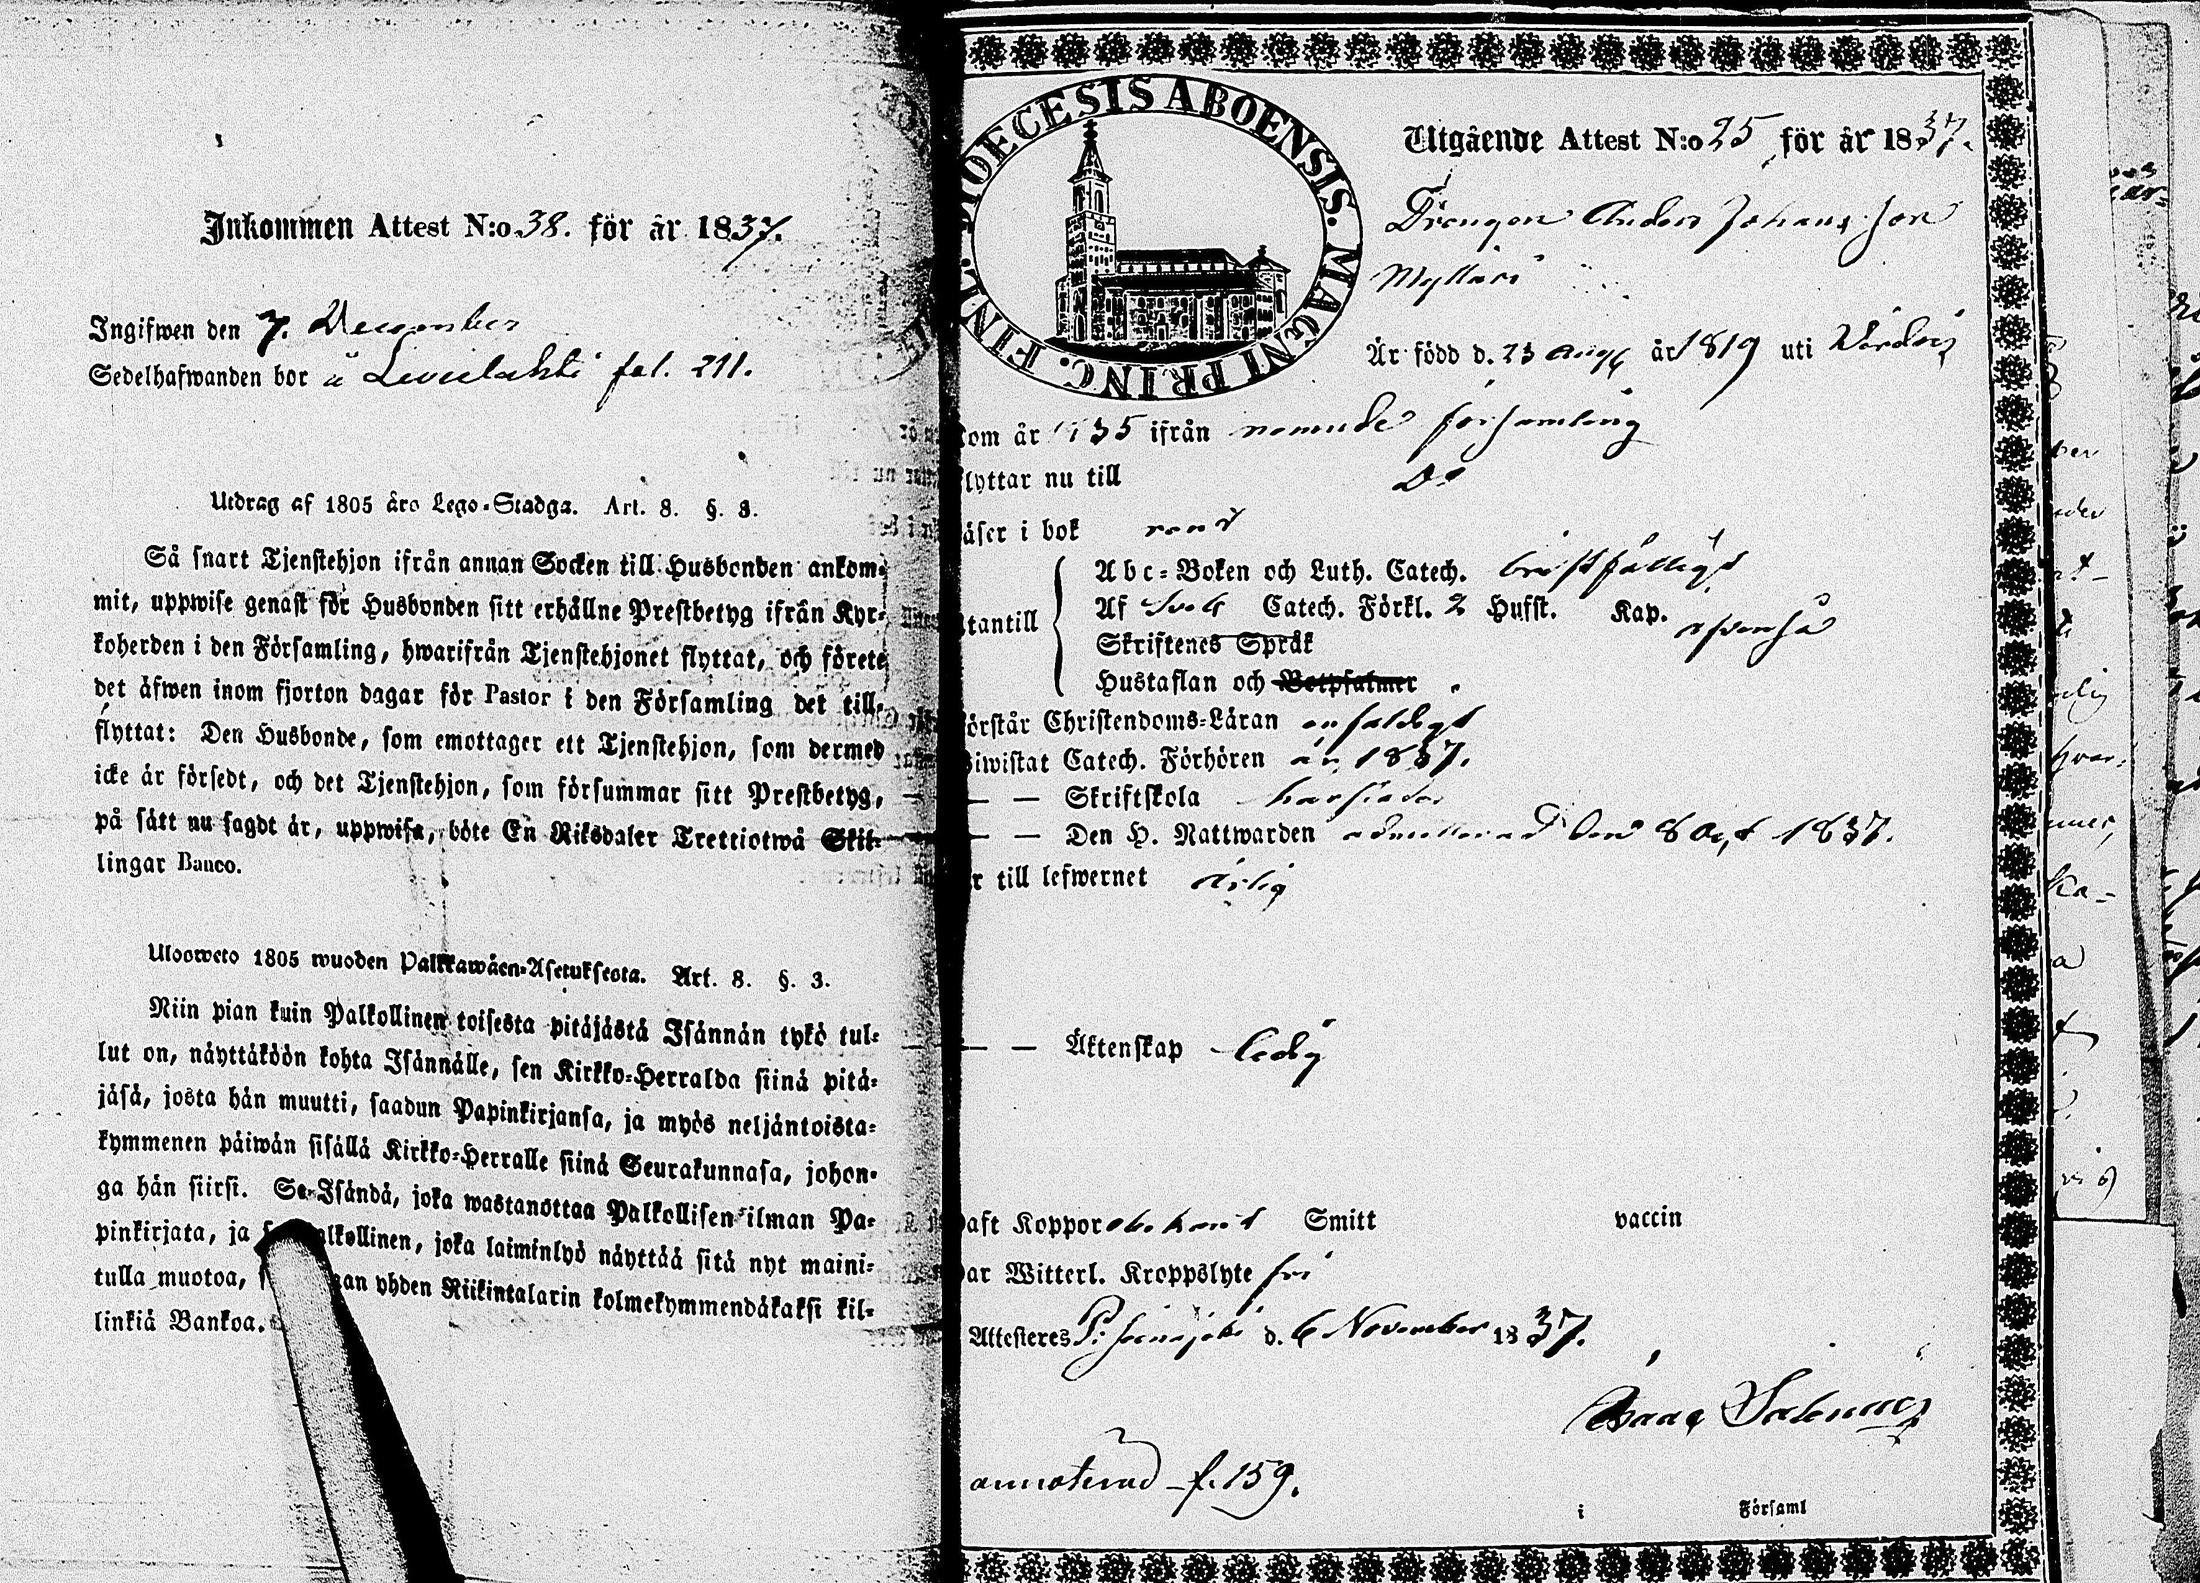 Inkommen Attest N:o 38. för år 1837.
Ingifwen den 7. December
Sedelhafwanden bor å fol. 211.
Utdrag af 1805 års Lego-Stadga. Art. 8. §. 3.
Så snart Tjenstehjon ifrån annan Socken till Husbonden ankom-
mit, uppwise genast för Husbonden sitt erhållne Prestbetyg ifrån Kyr-
koherden i den Församling, hwarifrån Tjenstehjonet flyttat, och förete
det äfwen inom fjorton dagar för Pastor i den Församling det till-
flyttat: Den Husbonde, som emottager ett Tjenstehjon, som dermed
icke är försedt, och det Tjenstehjon, som försummar sitt Prestbetyg,
på sätt nu sagdt är, uppwisa, böte En Riksdaler Trettiotwå Skil-
lingar Banco.
Ulosweto 1805 wuoden Palkkawäen-Asetuksesta. Art. 8. §. 3.
Niin pian kuin Palkollinen toisesta pitäjästä Isännän tykö tul-
lut on, näyttäköön kohta Isännälle, sen Kirkko-Herralda siinä pitä-
jäsä, josta hän muutti, saadun Papinkirjansa, ja myös neljäntoista-
kymmenen päiwän sisällä Kirkko-Herralle siinä Seurakunnasa, johon-
ga hän siirsi. Se Isändä, joka wastanottaa Palkollisen ilman Pa-
pinkirjata, ja alkollinen, joka laiminlyö näyttää sitä nyt maini-
tulla muotoa, aan yhden Riikintalarin kolmekymmendäkaksi kil-
linkiä Bankoa.
DIOECESIS ABOENSIS. MAGNI PRINC. FINL.
Utgående Attest N:o 25 för år 1837.
Drengen Anders Johansson
Myllari
Är född d. 23 Aug år 1819 uti
om år 35 ifrån nemnde församling
lyttar nu till Do
äser i bok rent
Abc-Boken och Luth. Catech. bristfälligt
Af Sveb Catech. Förkl. 2 Hufst. Kap.
tantill
Skriftenes Språk
Hustaflan och Botpsalmer
örstår Christendoms-Läran enfaldigt
iwistat Catech. Förhören år 1837.
— — Skriftskola
— — Den H. Nattwarden admitterad den 8 Oct 1837.
r till lefwernet ärlig
— — Äktenskap ledig
aft Koppor obekant Smitt vaccin
ar Witterl. Kroppslyte fri
Attesteres d. 6 November 1837.
Isaac
annoterad f. 159.
i Församl